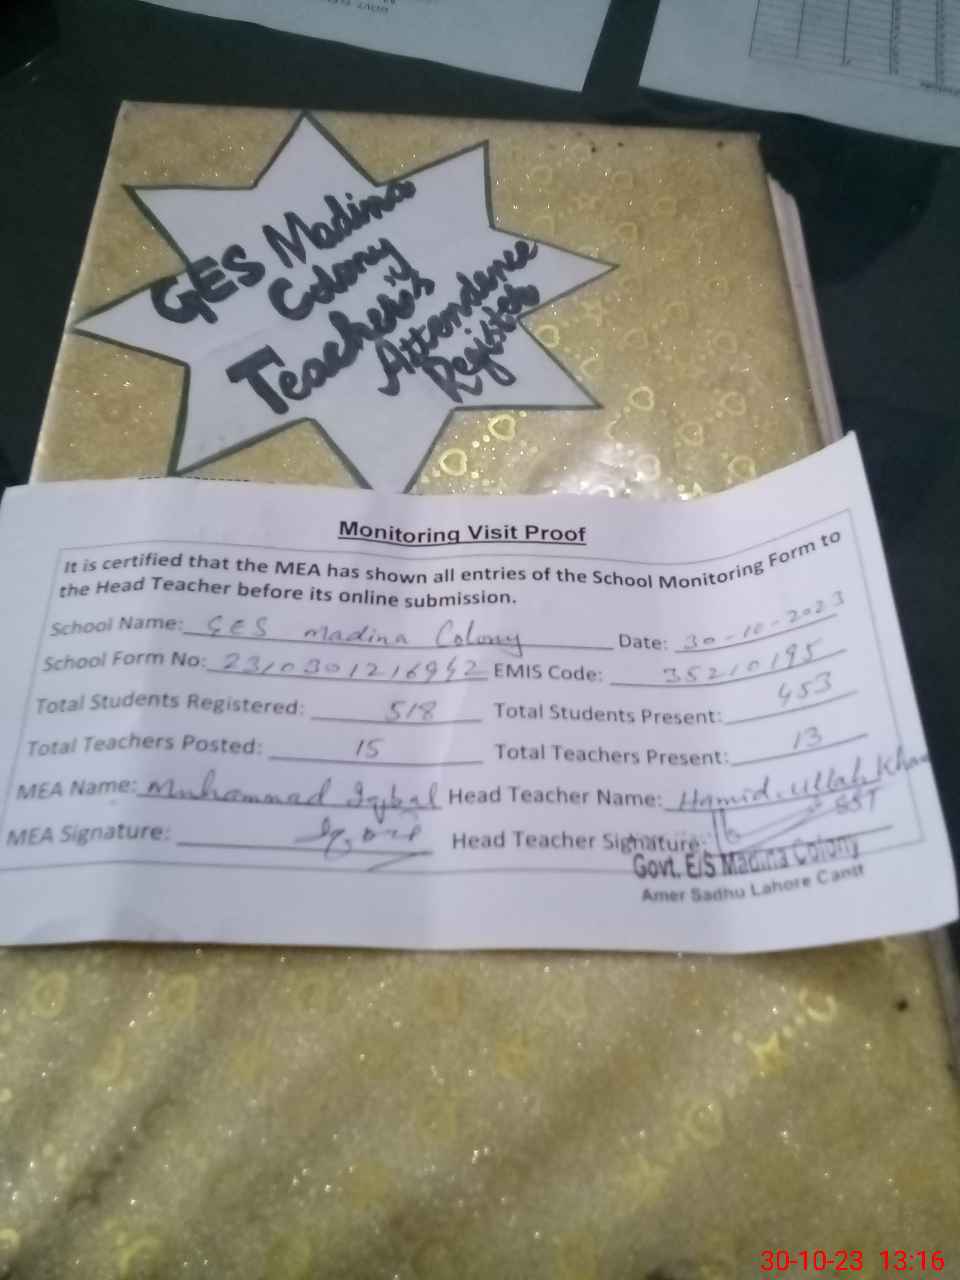 GES Madina
Colony
Teacher's
Attendence
Register
Monitoring Visit Proof
It is certified that the MEA has shown all entries of the School Monitoring Form to
the Head Teacher before its online submission.
School Name: GES Madina Colony Date: 30-10-2023
School Form No: 2310301216942 EMIS Code: 35210195
Total Students Registered: 518 Total Students Present: 453
Total Teachers Posted: 15 Total Teachers Present: 13
MEA Name: Muhammad Iqbal Head Teacher Name: Hamid ullah Khan
SST
MEA Signature: Head Teacher Signature:
Govt. E/S Madina Colony
Amer Sadhu Lahore Cantt
30-10-23 13:16